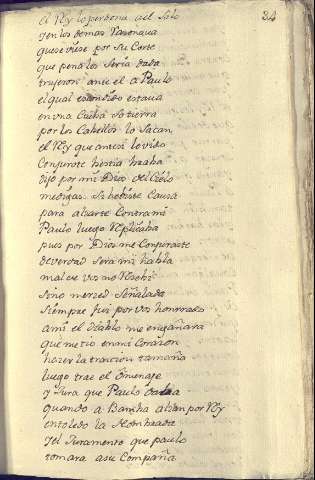 34
el Rey lo perdona ael solo
y en los demas
que se viese por su Corte
que pena les seria dada
trujeron ante el a Paulo
el qual escondido estaua
en vna Cueba so tierra
por los Cabellos lo sacan
el Rey que ante si lo vido
Conjurote bestia
dijo por mi Dios del Cielo
me digas si hobiste Causa
para alzarte Contra mi
Paulo luego Replicaba
pues por Dios me Conjuraste
de verdad sera mi habla
mal de vos no Recebi
sino merced señalada
siempre fui por vos honrrado
a mi el diablo me engañara
que metio en mi Corazon
hazer la traicion tamaña
luego trae el Omenage
y Jura que Paulo
quando a Bamba alzan por Rey
en toledo la
y el Juramento que paulo
tomara a su Compaña